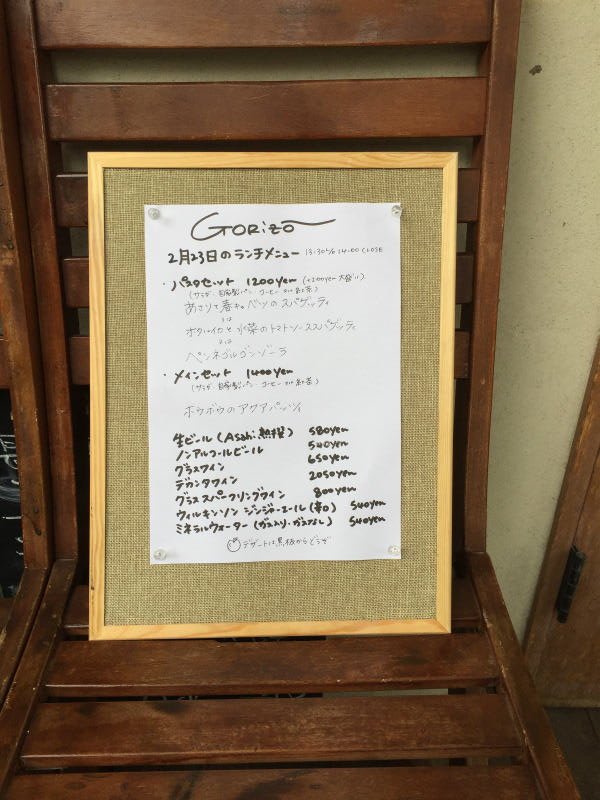 GORIZO
2月23日のランチメニュー 13:30L/O 14:00 CLOSE
・パスタセット 1200yen (+200yen 大盛り)
(サラダ・自家製パン・コーヒー or 紅茶)
あさりと春キャベツのスパゲッティ
又は
ホタルイカと水菜のトマトソーススパゲッティ
又は
ペンネゴルゴンゾーラ
・メインセット 1400yen
(サラダ・自家製パン・コーヒー or 紅茶)
ホウボウのアクアパッツァ
生ビール (Asahi 熟撰) 580yen
ノンアルコールビール 540yen
グラスワイン 650yen
デカンタワイン 2050yen
グラススパークリングワイン 800yen
ウィルキンソン ジンジャーエール (辛口) 540yen
ミネラルウォーター (ガス入り・ガスなし) 540yen
デザートは黒板からどうぞ